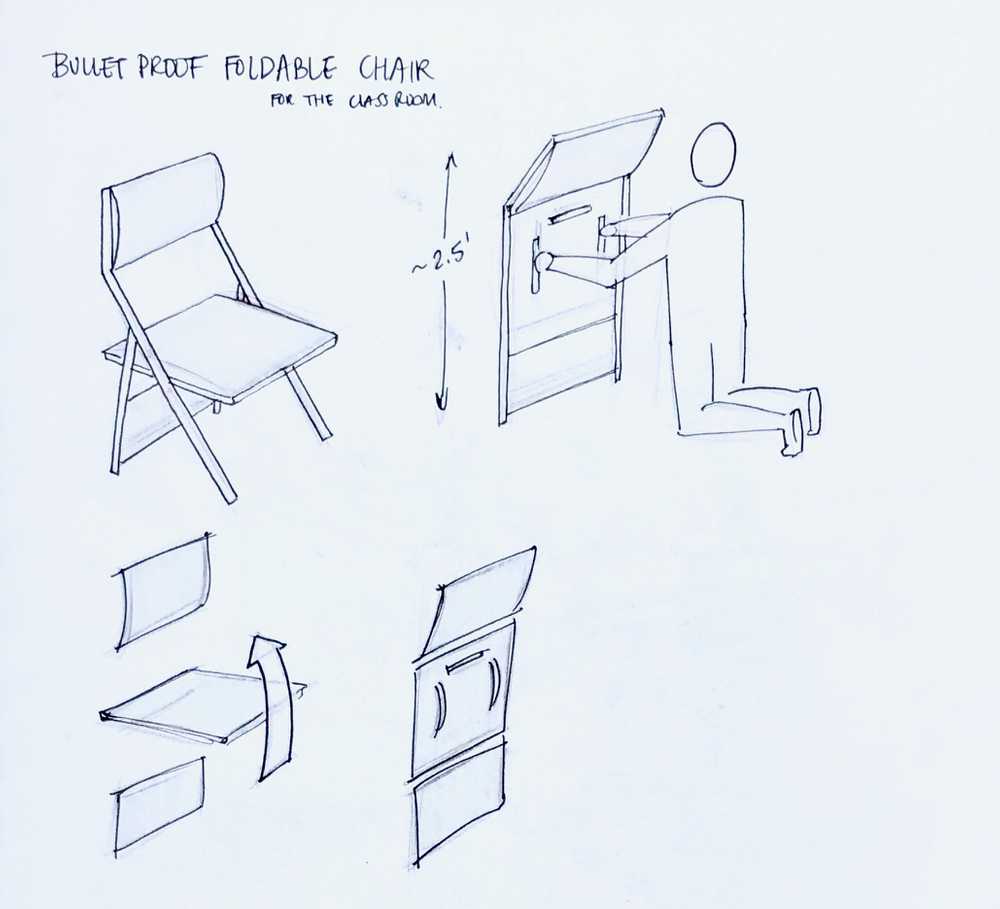 BULLET PROOF FOLDABLE CHAIR
FOR THE CLASSROOM.
~2.5'